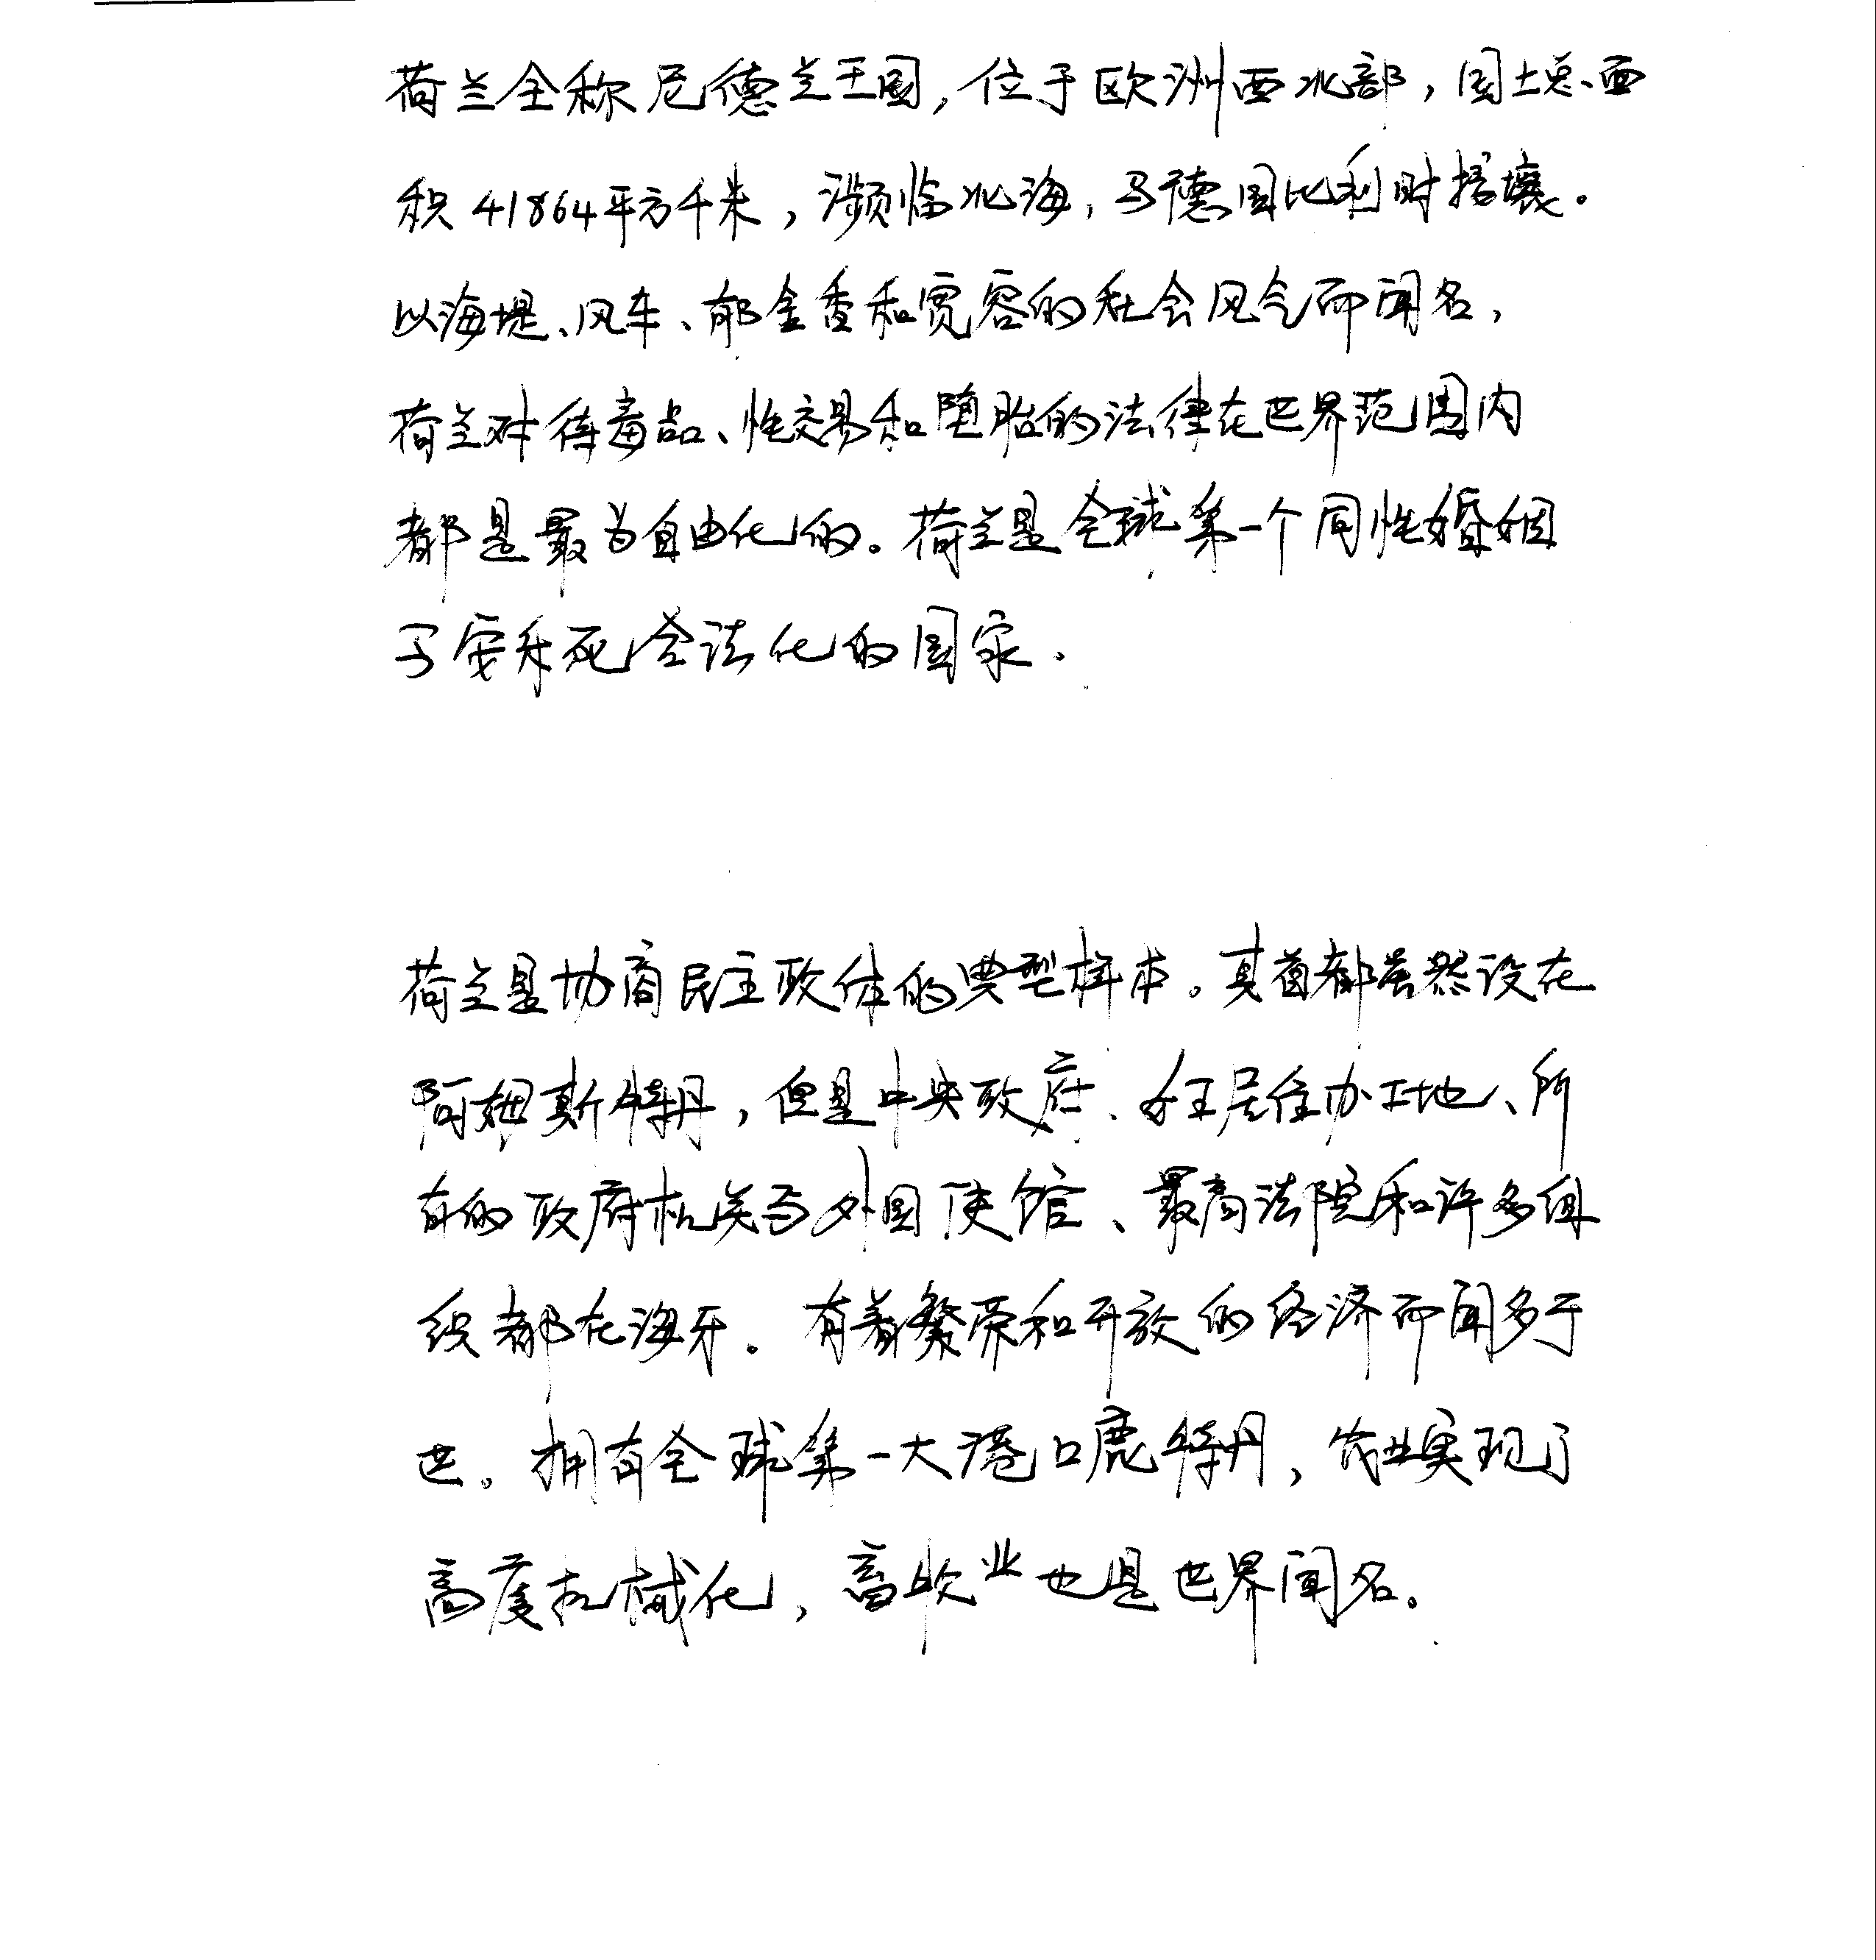 荷兰全称尼德兰王国，位于欧洲西北部，国土总面
积41864平方千米，濒临北海，与德国比利时接壤。
以海堤、风车、郁金香和宽容的社会风气而闻名，
荷兰对待毒品、性交易和堕胎的法律在世界范围内
都是最为自由化的。荷兰是全球第一个同性婚姻
与安乐死合法化的国家．
荷兰是协商民主政体的典型样本。其首都虽然设在
阿姆斯特丹，但是中央政府、女王居住办工地、所
有的政府机关与外国使馆、最高法院和许多组
织都在海牙。有着繁荣和开放的经济而闻多于
世。拥有全球第一大港口鹿特丹，农业实现了
高度机械化，畜牧业也是世界闻名。